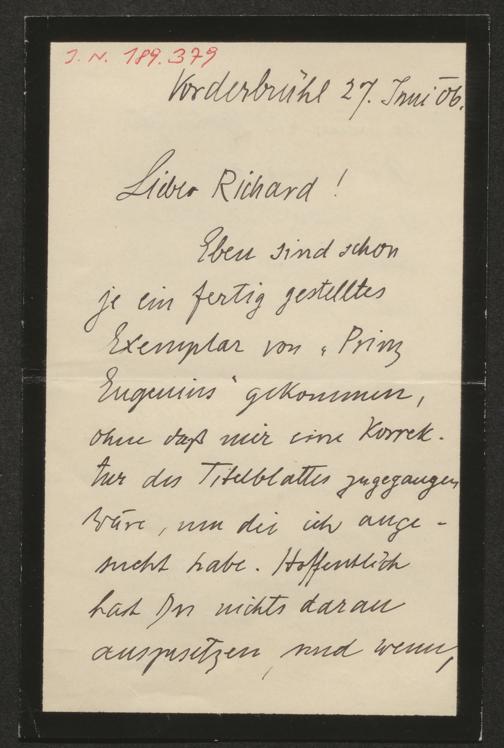 J. N. 189.379
Vorderbrühl 27. Juni 06.
Lieber Richard!
Eben sind schon
je ein fertig gestelltes
Exemplar von „Prinz
Eugenius" gekommen,
ohne daß mir eine Korrek-
tur des Titelblattes zugegangen
wäre, um die ich ange-
sucht habe. Hoffentlich
hast Du nichts daran
auszusetzen, und wenn,